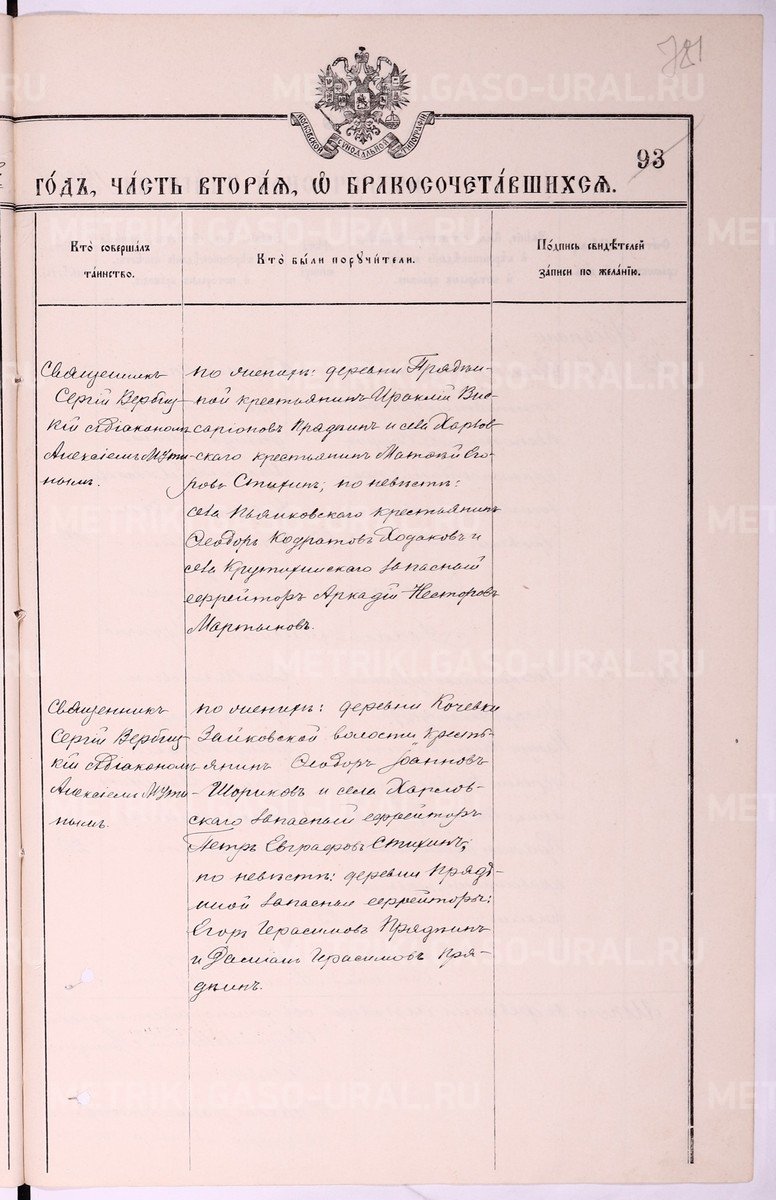 781
МОСКОВСКОЙ СѴНОДАЛЬНОЙ ТИПОГРАФІИ
93
ГО́ДЪ, ЧА́СТЬ ВТОРА́Я, Ѽ БРАКОСОЧЕТА́ВШИХСЯ.
Кто̀ соверша́лъ
та́инство.
Кто̀ бы́ли поручи́тели.
По́дпись свидѣ́телей
за́писи по жела́нію.
Священникъ
Сергій Вербиц-
кій съ діакономъ
Алексіемъ Мути-
нымъ.
по женихѣ: деревни Прядеи-
ной крестьянинъ Ираклій Вис-
саріоновъ Прядеинъ и села Харлов-
скаго крестьянинъ Матѳій Его-
ровъ Стихинъ; по невѣстѣ:
села крестьянинъ
Ѳеодоръ Кодратовъ Ходаковъ и
села Крутихинскаго запасный
ефрейторъ Аркадій Несторовъ
Мартыновъ.
Священникъ
Сергій Вербиц-
кій съ діакономъ
Алексіемъ Мути-
нымъ.
по женихѣ: деревни Кочевки
Зайковской волости кресть-
янинъ Ѳеодоръ Іоанновъ
Шориковъ и села Харлов-
скаго запасный ефрейторъ
Петръ Евграфовъ Стихинъ;
по невѣстѣ: деревни Пряде-
иной запасные ефрейторы:
Егоръ Герасимовъ Прядеинъ
и Даміанъ Герасимовъ Пря-
деинъ.
METRIKI.GASO-URAL.RU